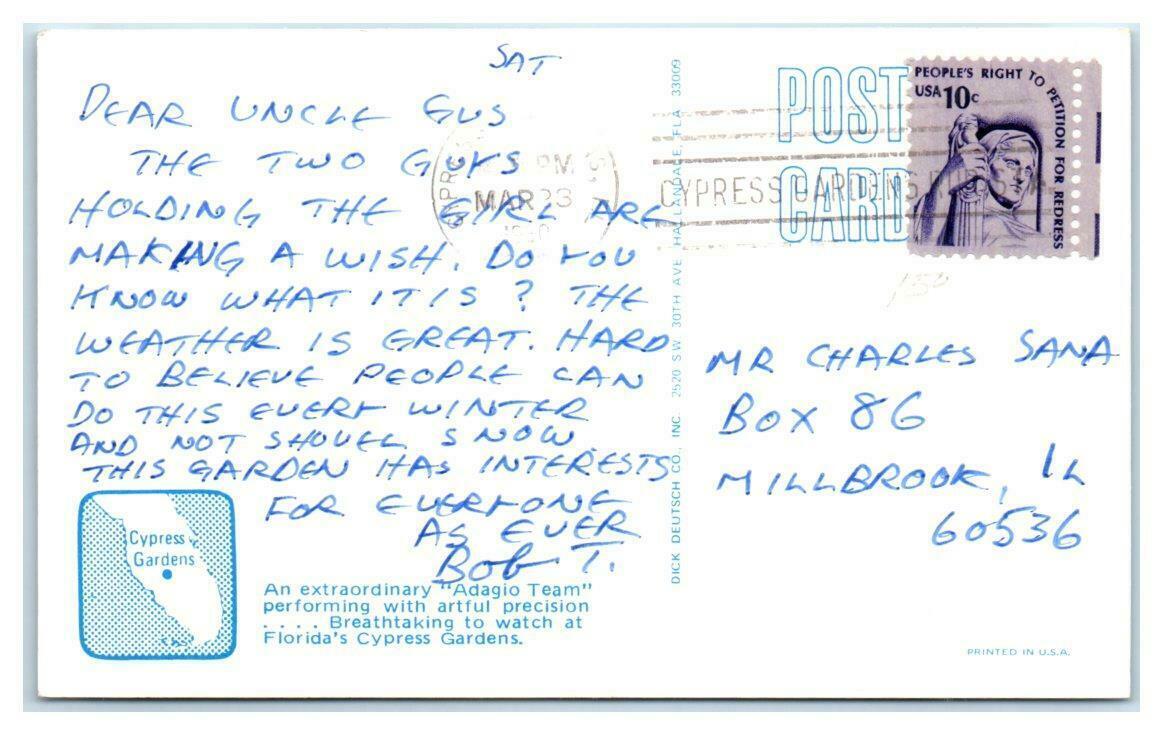 SAT
DEAR UNCLE GUS
THE TWO GUYS
HOLDING THE GIRL ARE
MAKING A WISH. DO YOU
KNOW WHAT IT IS? THE
WEATHER IS GREAT. HARD
TO BELIEVE PEOPLE CAN
DO THIS EVERY WINTER
AND NOT SHOVEL SNOW.
THIS GARDEN HAS INTERESTS
FOR EVERYONE
AS EVER
Bob T.
Cypress
Gardens
An extraordinary "Adagio Team"
performing with artful precision
. . . . Breathtaking to watch at
Florida's Cypress Gardens.
DICK DEUTSCH CO., INC. 2520 SW 30TH AVE HALLANDALE, FLA 33009
POST
CARD
PM
MAR 23
CYPRESS GARDENS
PEOPLE'S RIGHT TO PETITION FOR REDRESS
USA 10c
150
MR CHARLES SANA
BOX 86
MILLBROOK, IL
60536
PRINTED IN U.S.A.